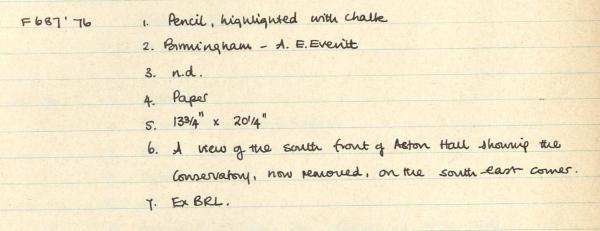 F687'76 1. Pencil, highlighted with chalk
2. Birmingham - A. E. Everitt
3. n.d.
4. Paper
5. 13 3/4" x 20 1/4"
6. A view of the south front of Aston Hall showing the
Conservatory, now removed, on the south-east corner.
7. Ex BRL.